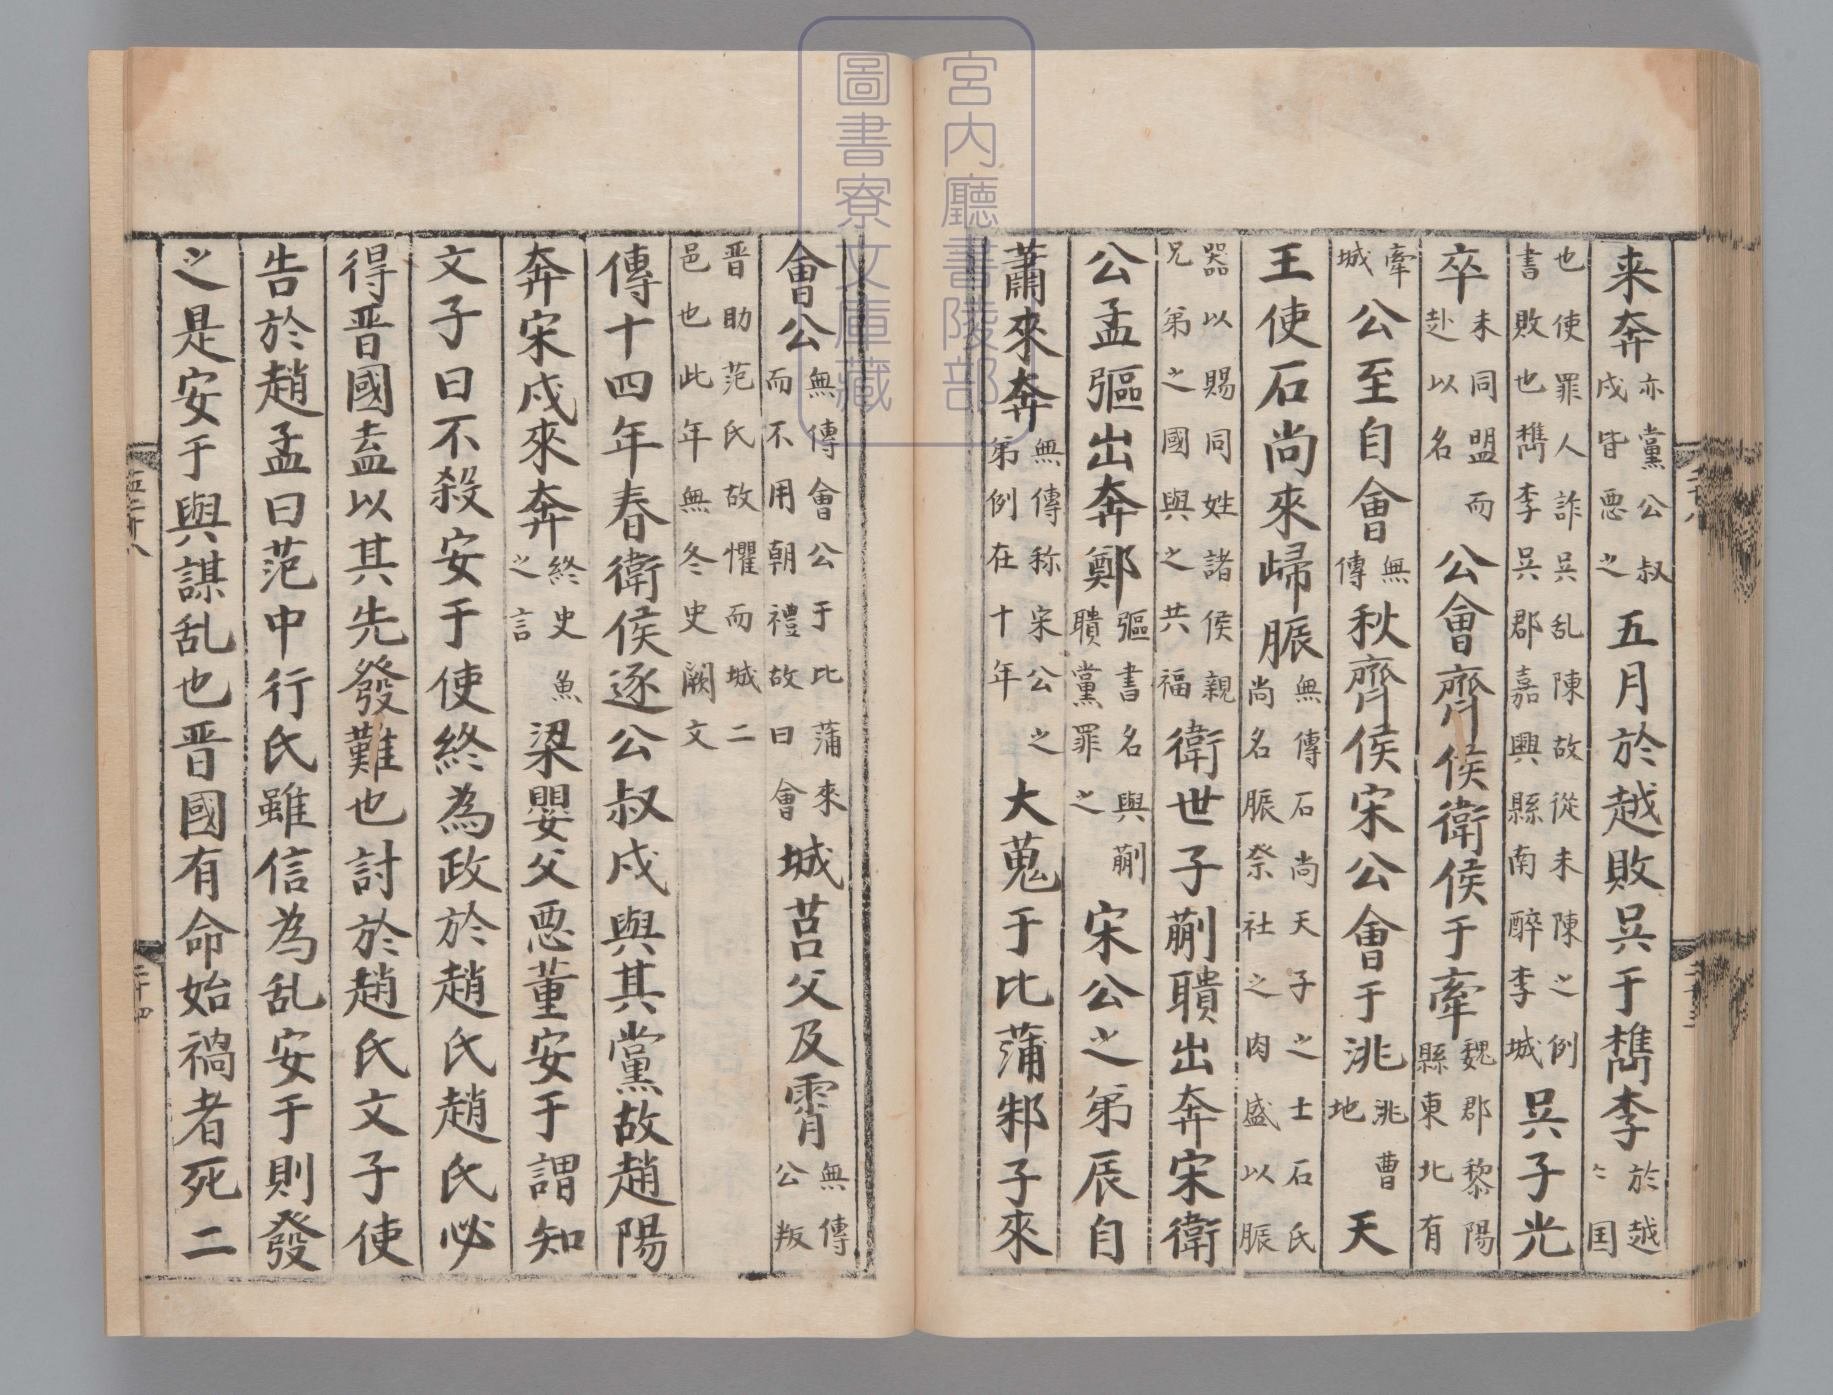 来奔亦黨公叔戍皆惡之五月於越敗吳于檇李於越〻国
也使罪人詐吳乱陳故從未陳之例書敗也檇李吳郡嘉興縣南醉李城吳子光
卒未同盟而赴以名公會齊侯衛侯于牽魏郡黎陽縣東北有
牽城公至自會無傳秋齊侯宋公會于洮洮曹地天
王使石尚來歸脤無傳石尚天子之士石氏尚名脤祭社之肉盛以脤
器以賜同姓諸侯親兄弟之國與之共福衛世子蒯聵出奔宋衛
公孟彄出奔鄭彄書名與蒯聵黨罪之宋公之弟辰自
蕭來奔無傳称宋公之弟例在十年大蒐于比蒲邾子來
會公無傳會公于比蒲來而不用朝禮故曰會城莒父及霄無傳公叛
晋助范氏故懼而城二邑也此年無冬史闕文
傳十四年春衛侯逐公叔戍與其黨故趙陽
奔宋戍來奔終史魚之言梁嬰父惡董安于謂知
文子曰不殺安于使終為政於趙氏趙氏必
得晋國盍以其先發難也討於趙氏文子使
告於趙孟曰范中行氏雖信為乱安于則發
之是安于與謀乱也晋國有命始禍者死二
宮内廳書陵部
圖書寮文庫藏